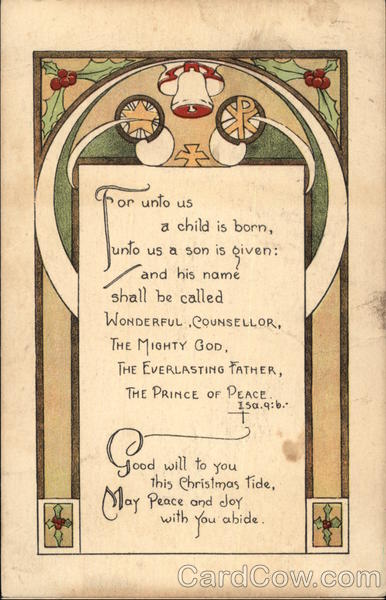 For unto us
a child is born,
unto us a son is given:
and his name
shall be called
WONDERFUL, COUNSELLOR,
THE MIGHTY GOD,
THE EVERLASTING FATHER,
THE PRINCE OF PEACE.
Isa.9:6.
Good will to you
this Christmas tide,
May Peace and Joy
with you abide.
CardCow.com